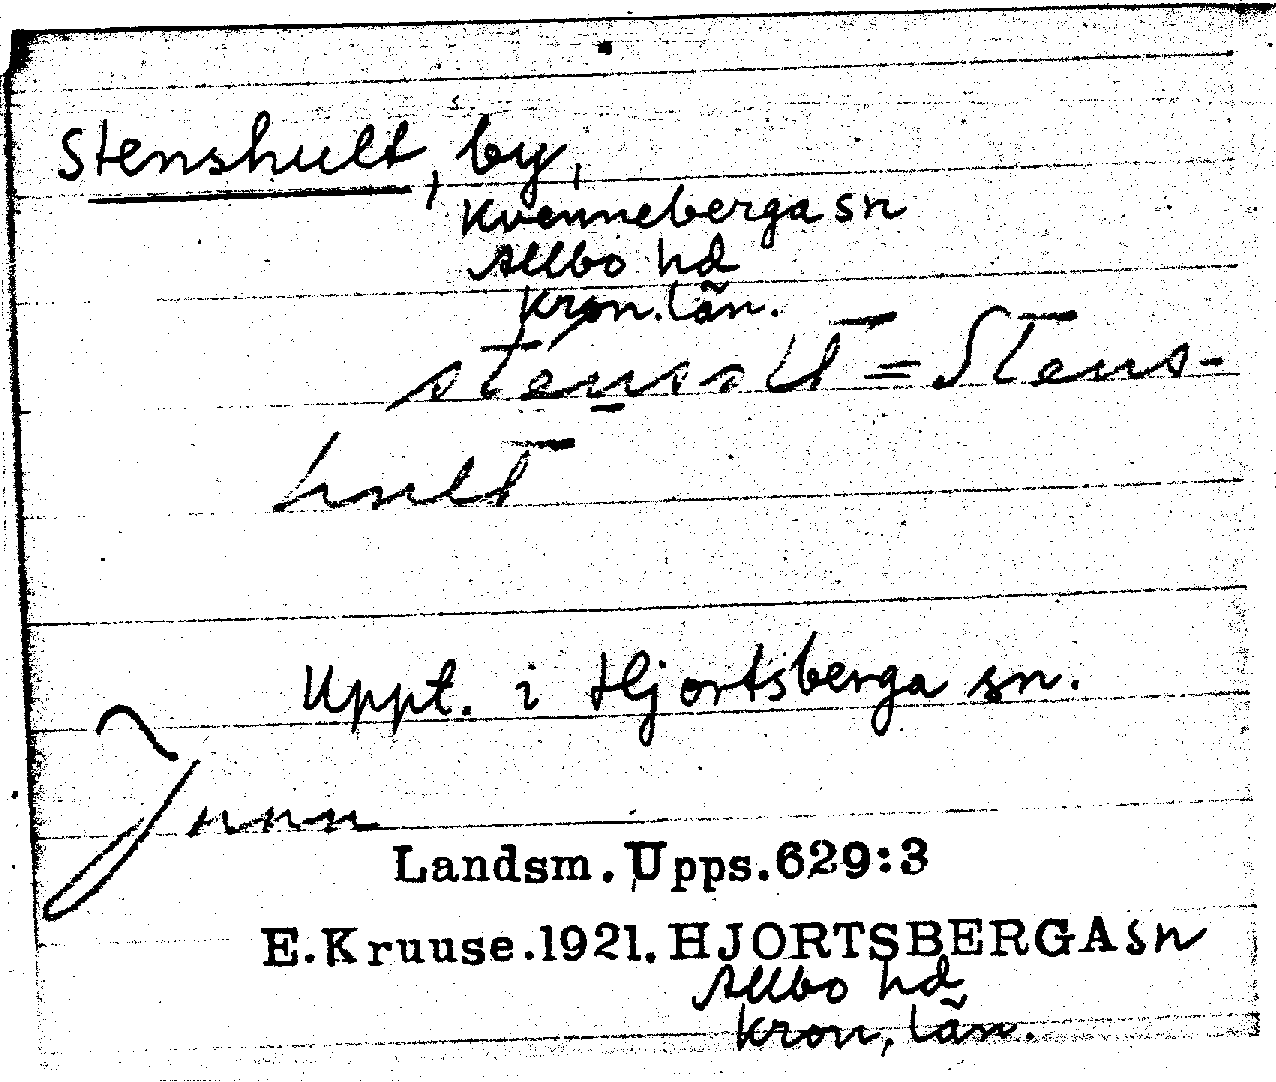 Stenshult, by,
Kvenneberga sn
Allbo hd
Kron. län.
= Stens-
hult
Uppt. i Hjortsberga sn.
Landsm. Upps. 629:3
E. Kruuse. 1921. HJORTSBERGA sn
Allbo hd
Kron, län.